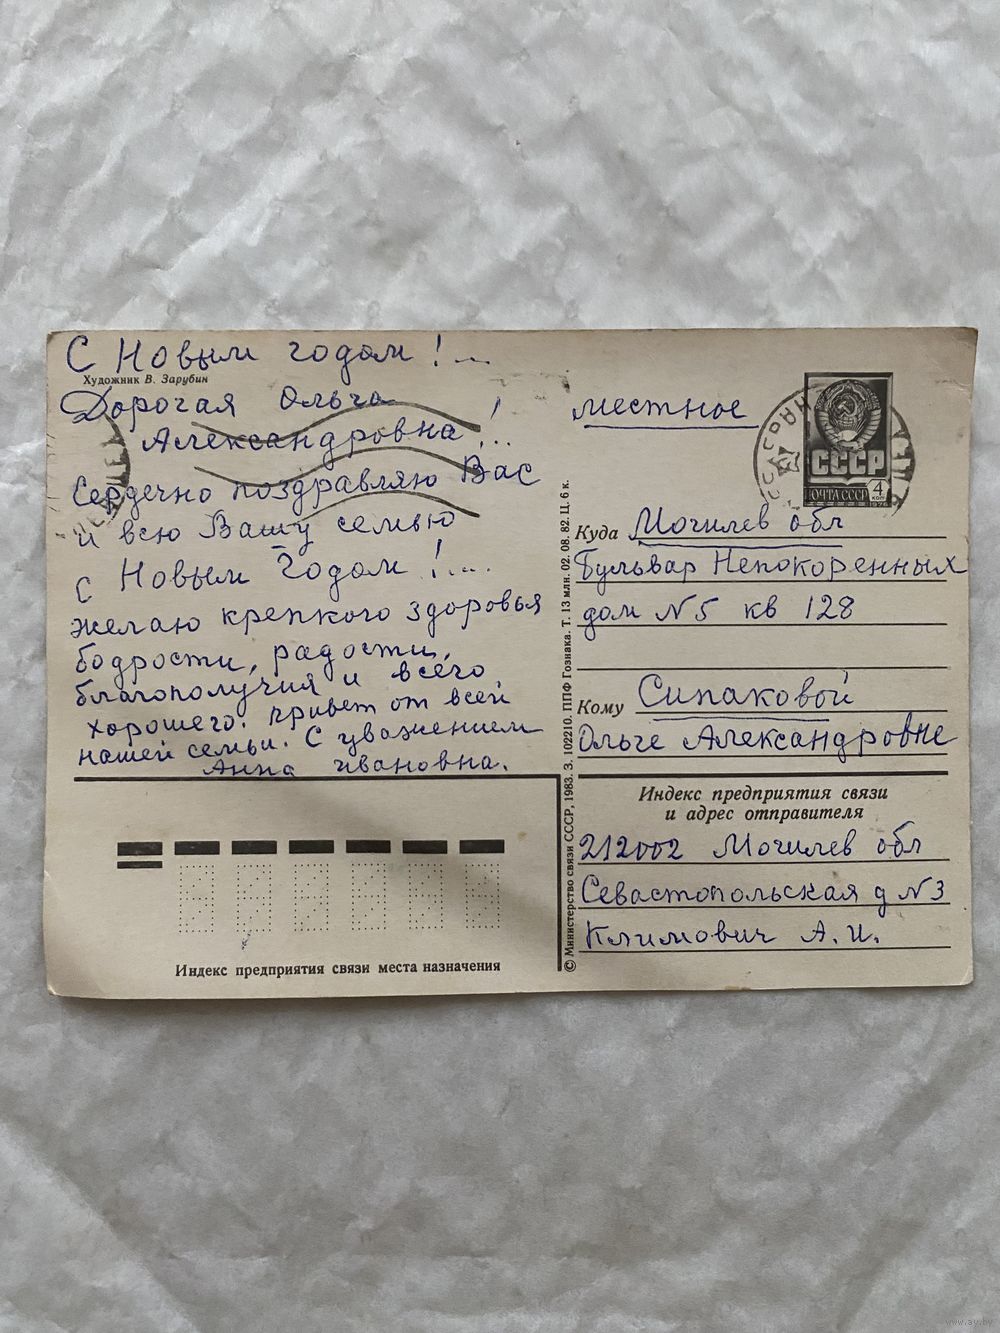 С Новым годом!...
Художник В. Зарубин
Дорогая Ольга
Александровна!...
Сердечно поздравляю Вас
и всю Вашу семью
С Новым Годом!....
желаю крепкого здоровья
бодрости, радости,
благополучия и всего
хорошего. привет от всей
нашей семьи. С уважением
Анна Ивановна.
местное
СССР
ПОЧТА СССР
4
коп
1976
Куда Могилев обл
Бульвар Непокоренных
дом №5 кв 128
Кому Сипаковой
Ольге Александровне
Индекс предприятия связи
и адрес отправителя
212002 Могилев обл
Севастопольская д №3
Климович А. И.
© Министерство связи СССР, 1983. З. 102210. ППФ Гознака. Т. 13 млн. 02. 08. 82. Ц. 6 к.
Индекс предприятия связи места назначения
www.ay.by